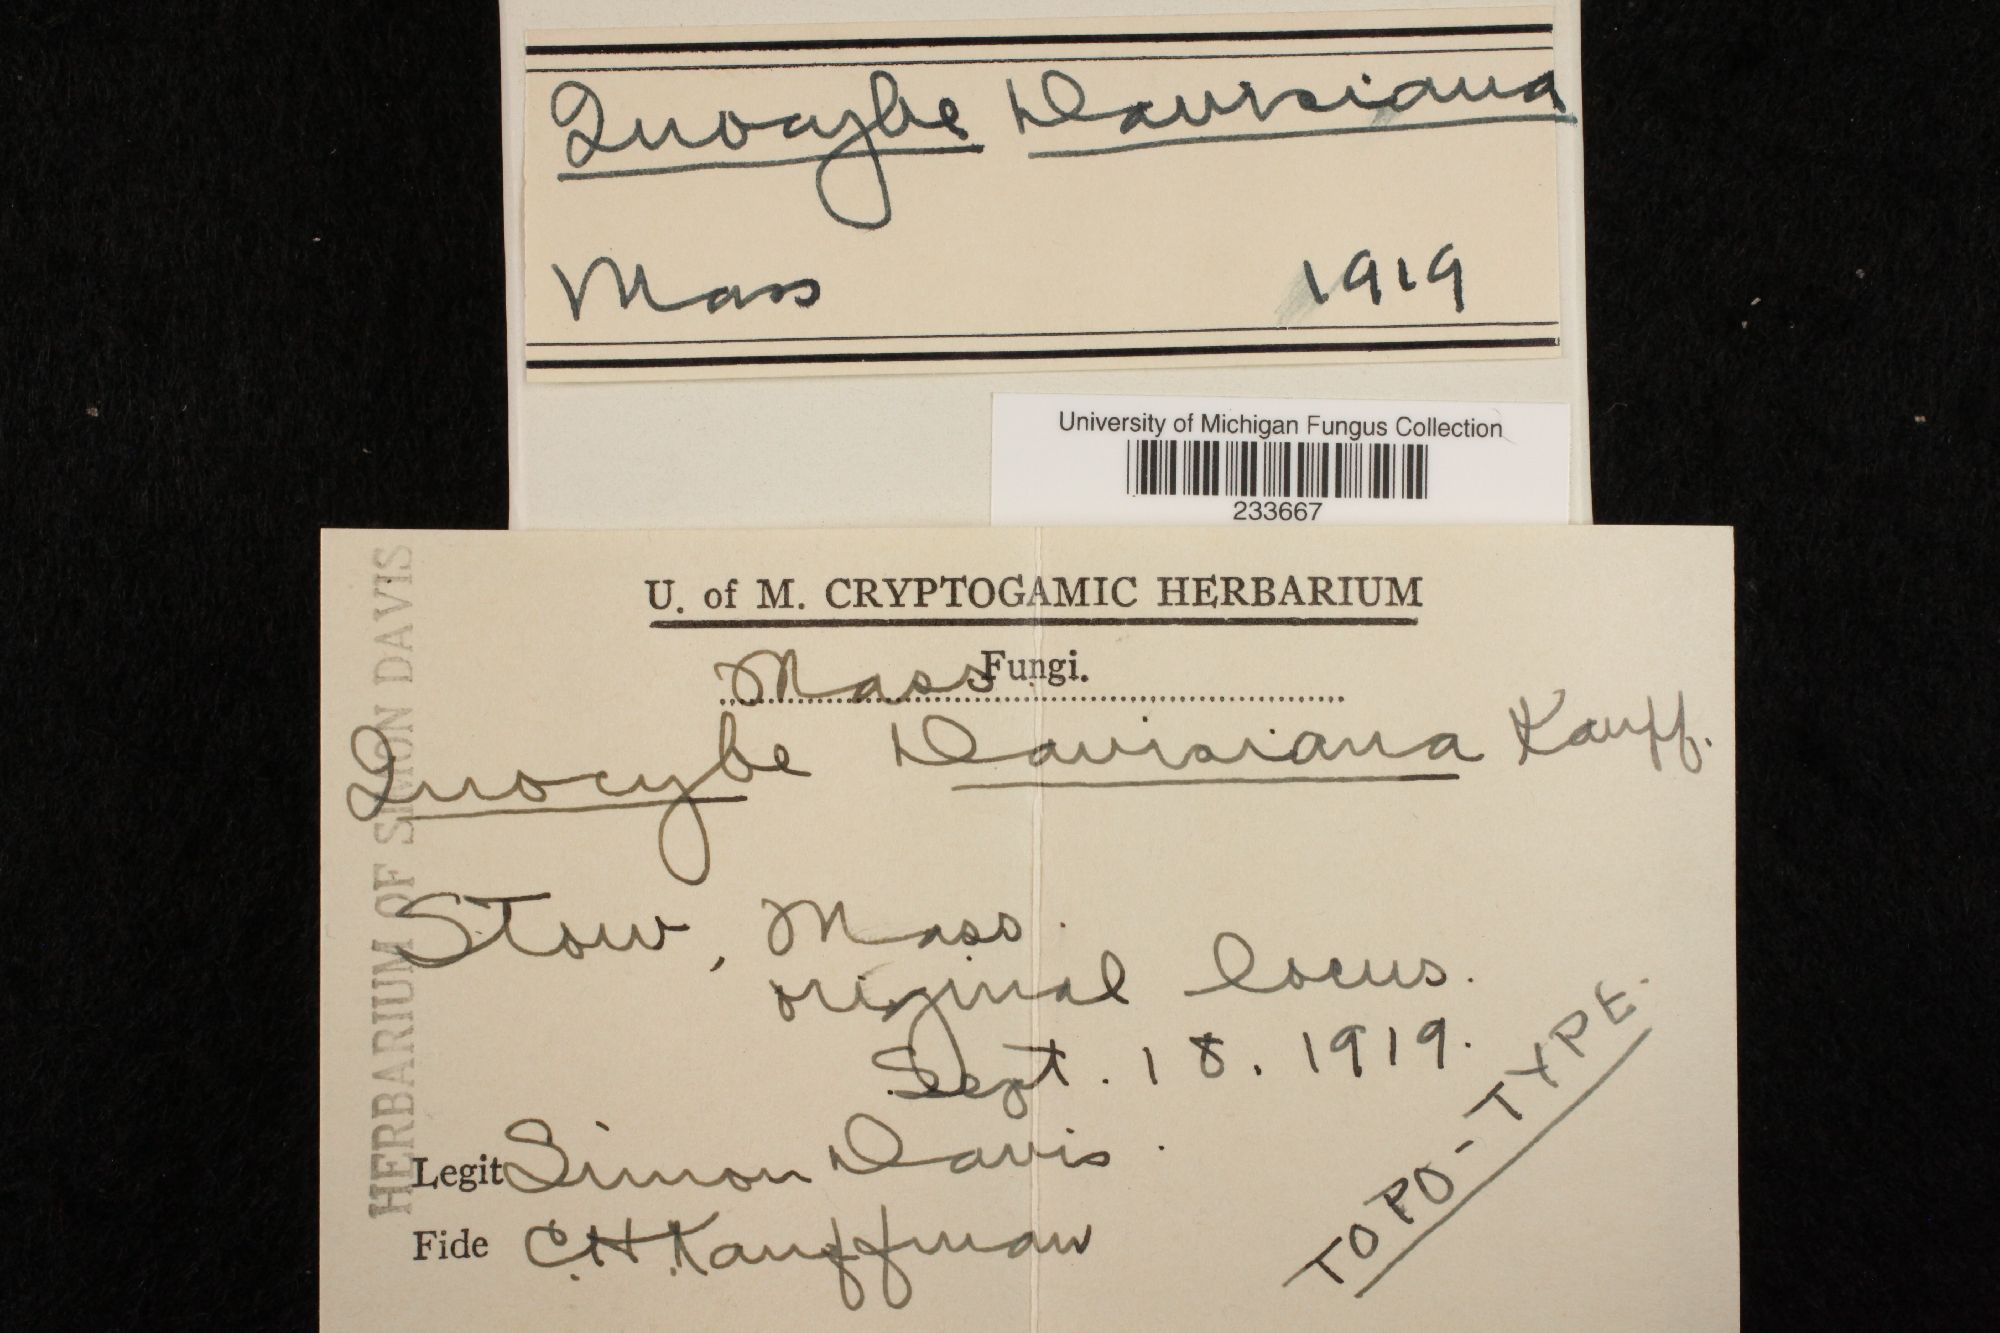 Inocybe Davisiana
Mass 1919
University of Michigan Fungus Collection
233667
HERBARIUM OF SIMON DAVIS
U. of M. CRYPTOGAMIC HERBARIUM
Mass Fungi.
Inocybe Davisiana Kauff.
Stow, Mass.
original locus.
Sept. 18. 1919.
Legit Simon Davis.
Fide C.H. Kauffman
TOPO-TYPE.